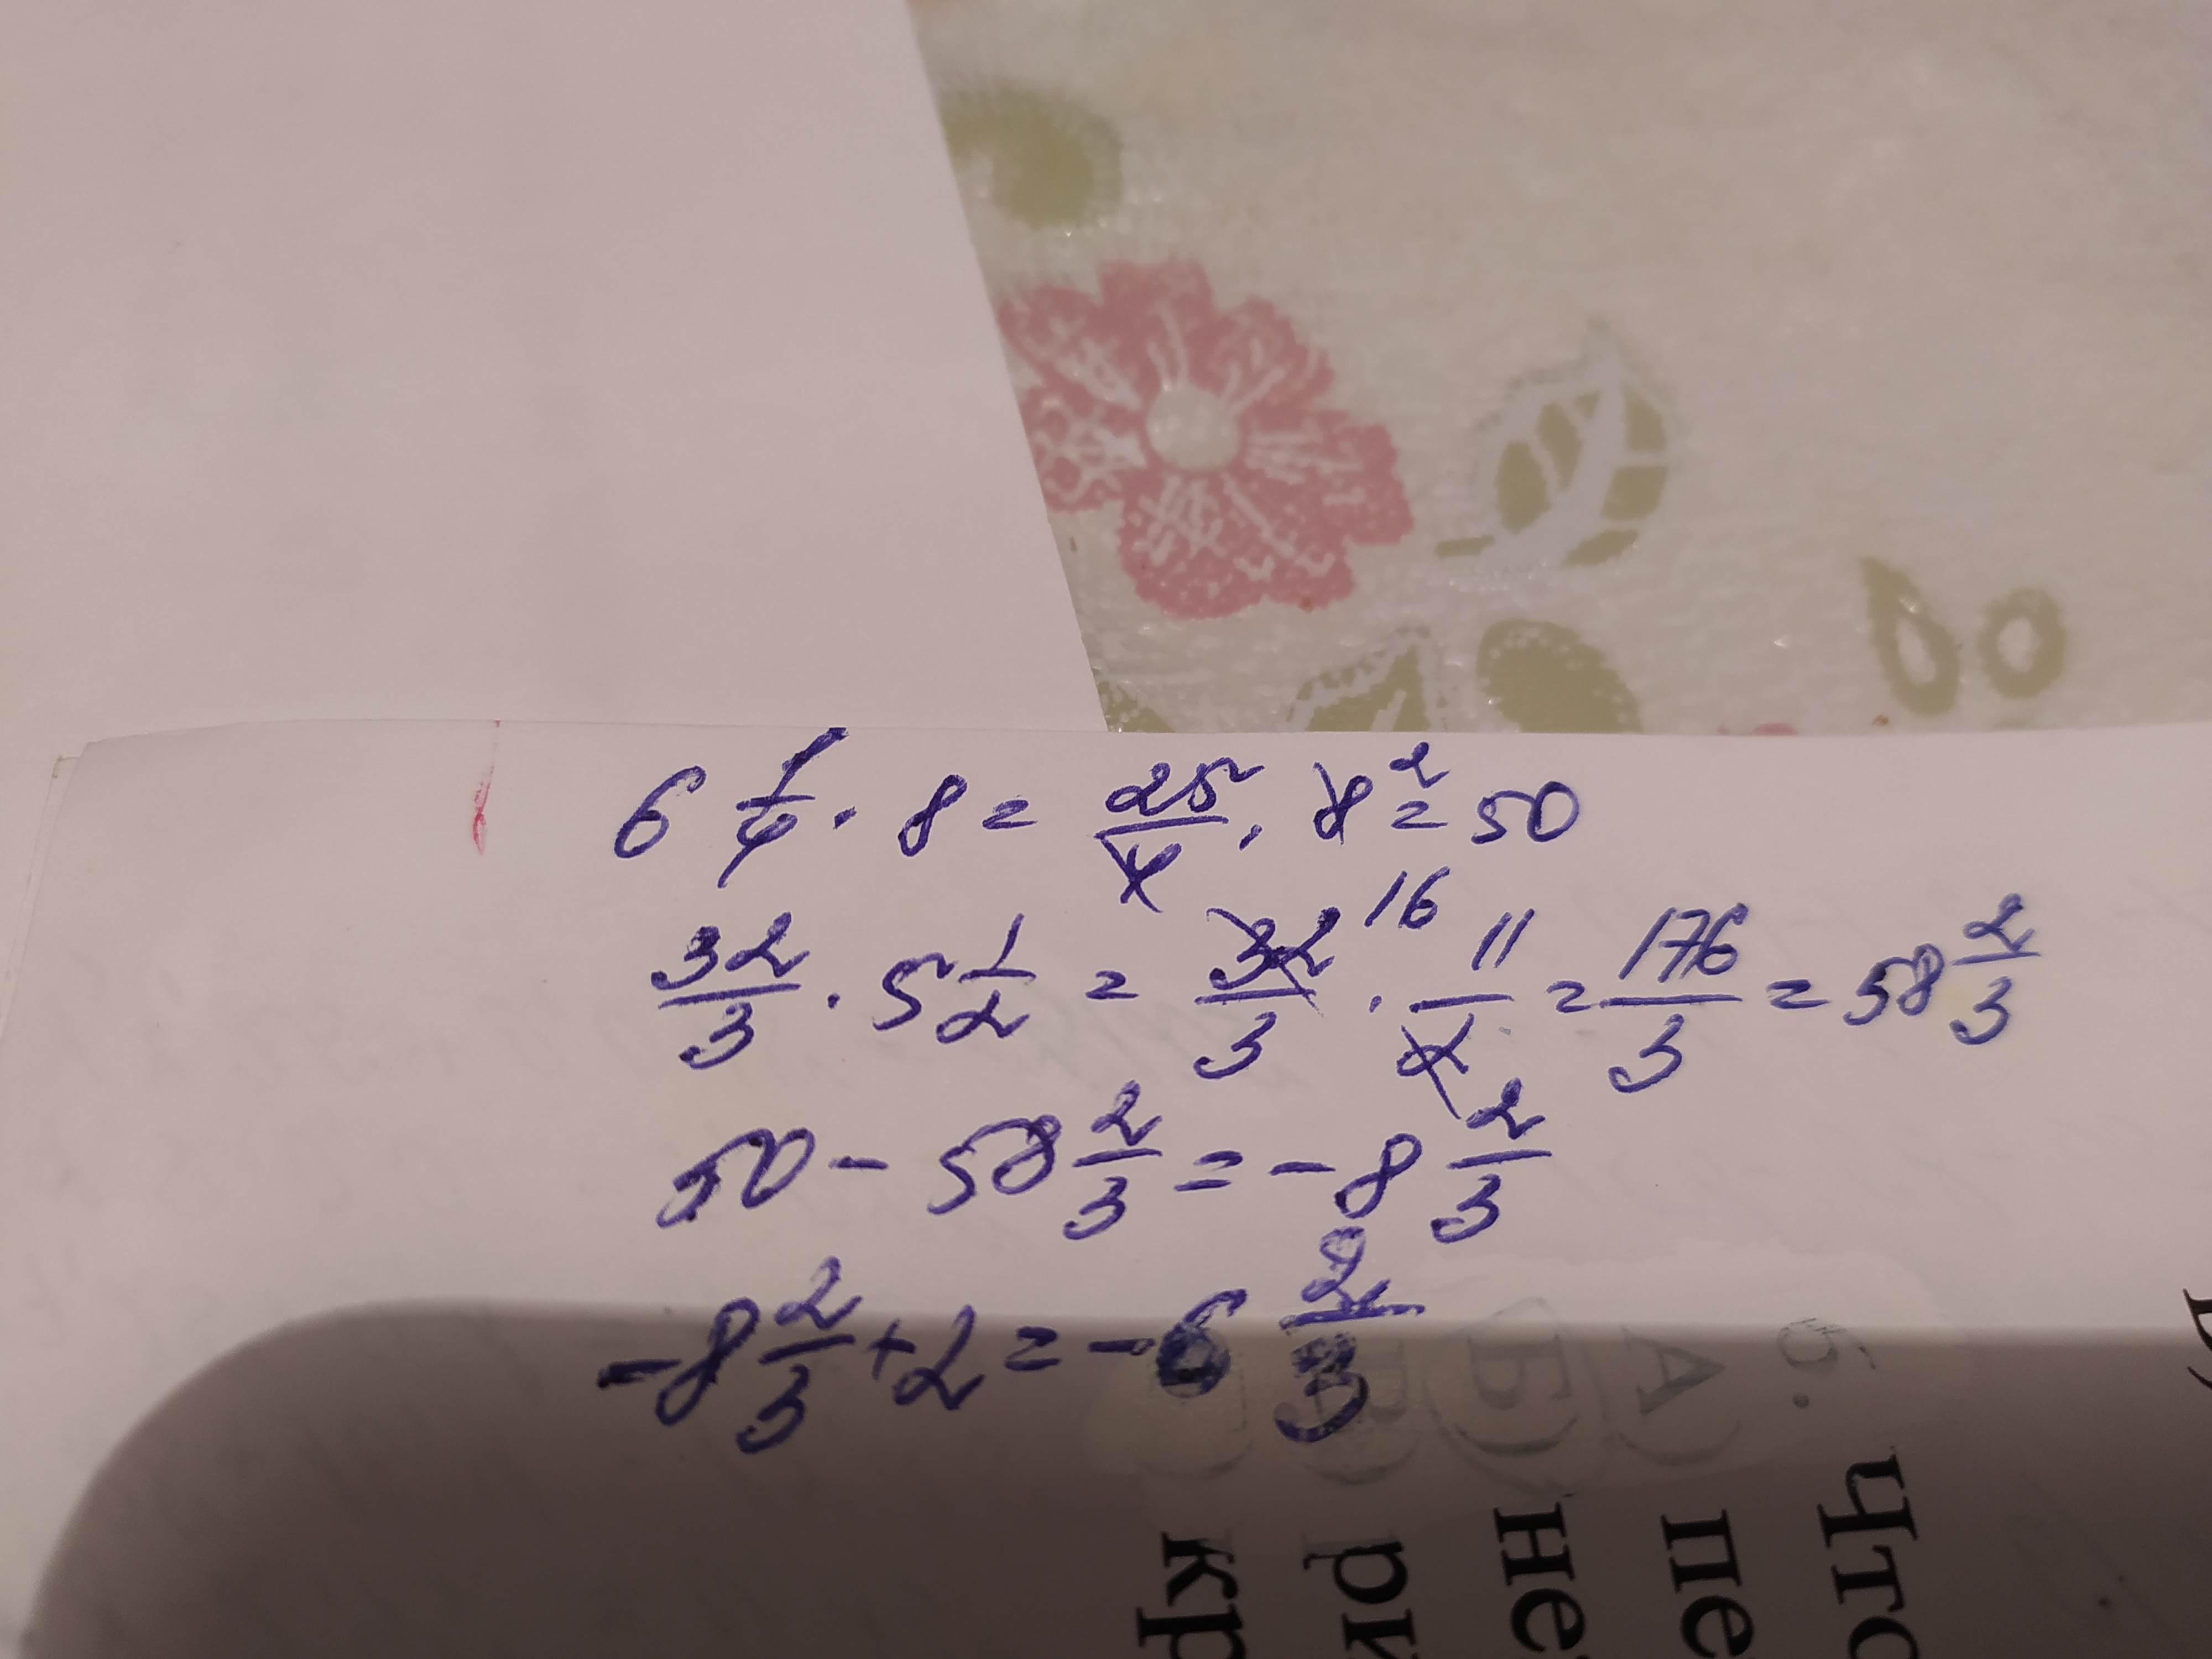 6 1/4 · 8 = 25/4 · 8 2 = 50
32/3 · 5 1/2 = 32/3 16 · 11/2 = 176/3 = 58 2/3
50 - 58 2/3 = -8 2/3
-8 2/3 + 2 = -6 2/3
6. Что
А) пе
Б) не
В) ри
кр